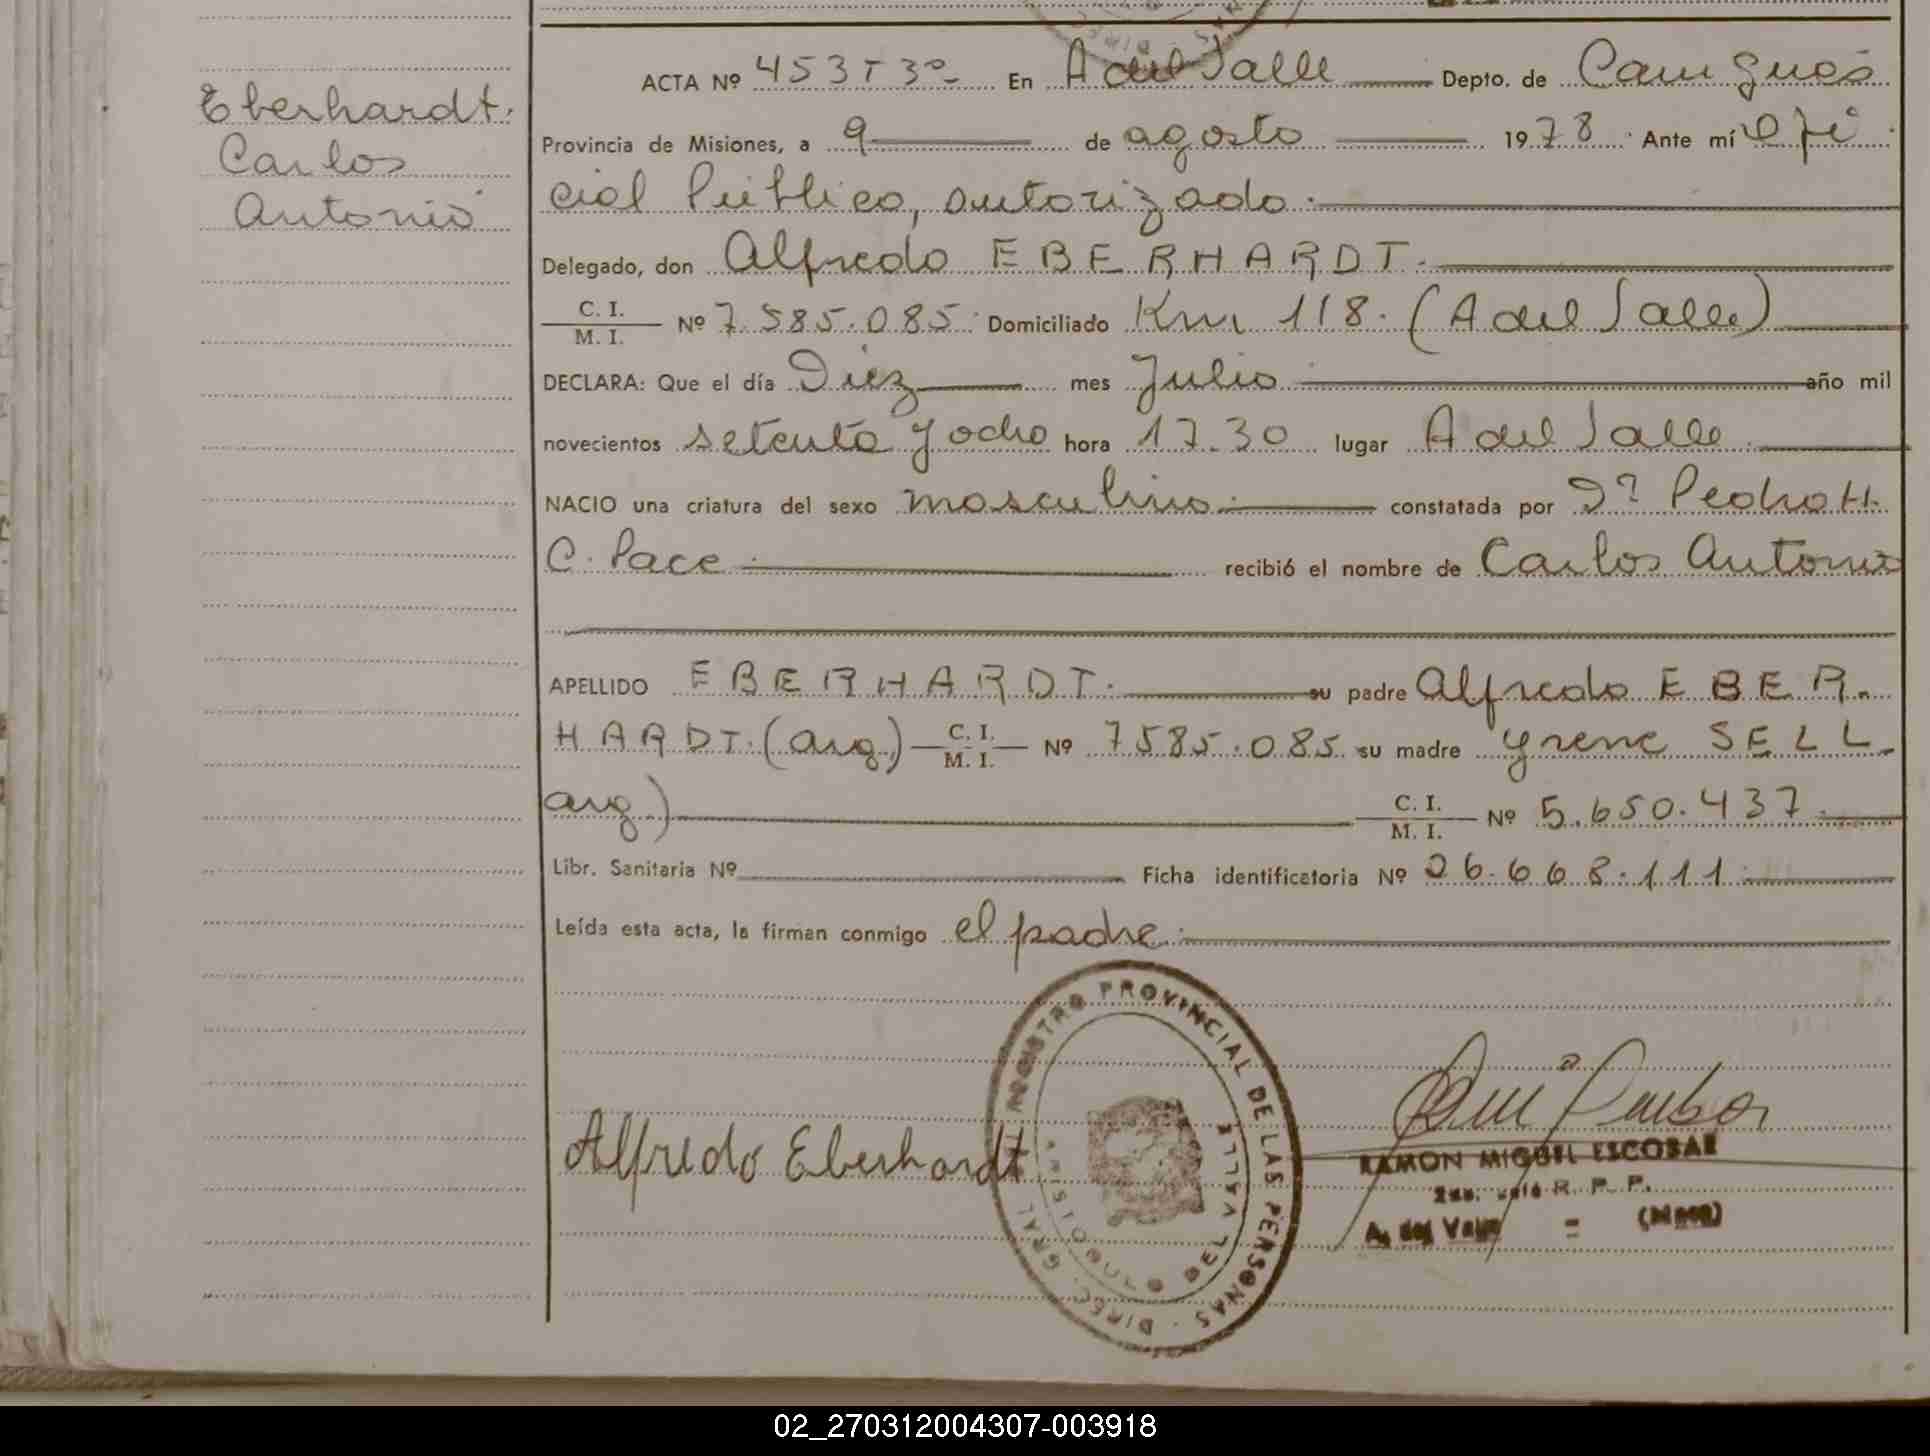 Eberhardt.
Carlos
Antonio
ACTA Nº 453 T 3º En A del Valle Depto. de Cainguás
Provincia de Misiones, a 9 de agosto 1978. Ante mí Ofi
cial Público, autorizado.
Delegado, don Alfredo EBERHARDT.
C. I.
M. I. Nº 7.585.085. Domiciliado Km 118. (A del Valle)
DECLARA: Que el día Diez mes Julio año mil
novecientos setenta y ocho hora 17.30 lugar A del Valle.
NACIO una criatura del sexo masculino. constatada por Dr Pedro H.
C. Pace recibió el nombre de Carlos Antonio
APELLIDO EBERHARDT. su padre Alfredo EBER-
HARDT. (arg.) C. I. M. I. Nº 7585.085 su madre Yrene SELL
arg) C. I. M. I. Nº 5.650.437.
Libr. Sanitaria Nº Ficha identificatoria Nº 26.668.111.
Leída esta acta, la firman conmigo el padre.
REGISTRO PROVINCIAL DE LAS PERSONAS - DIREC. GRAL.
DEL VALLE
Alfredo Eberhardt
RAMON MIGUEL ESCOBAR
R. P. P.
A. del Valle = (Mnes)
02_270312004307-003918